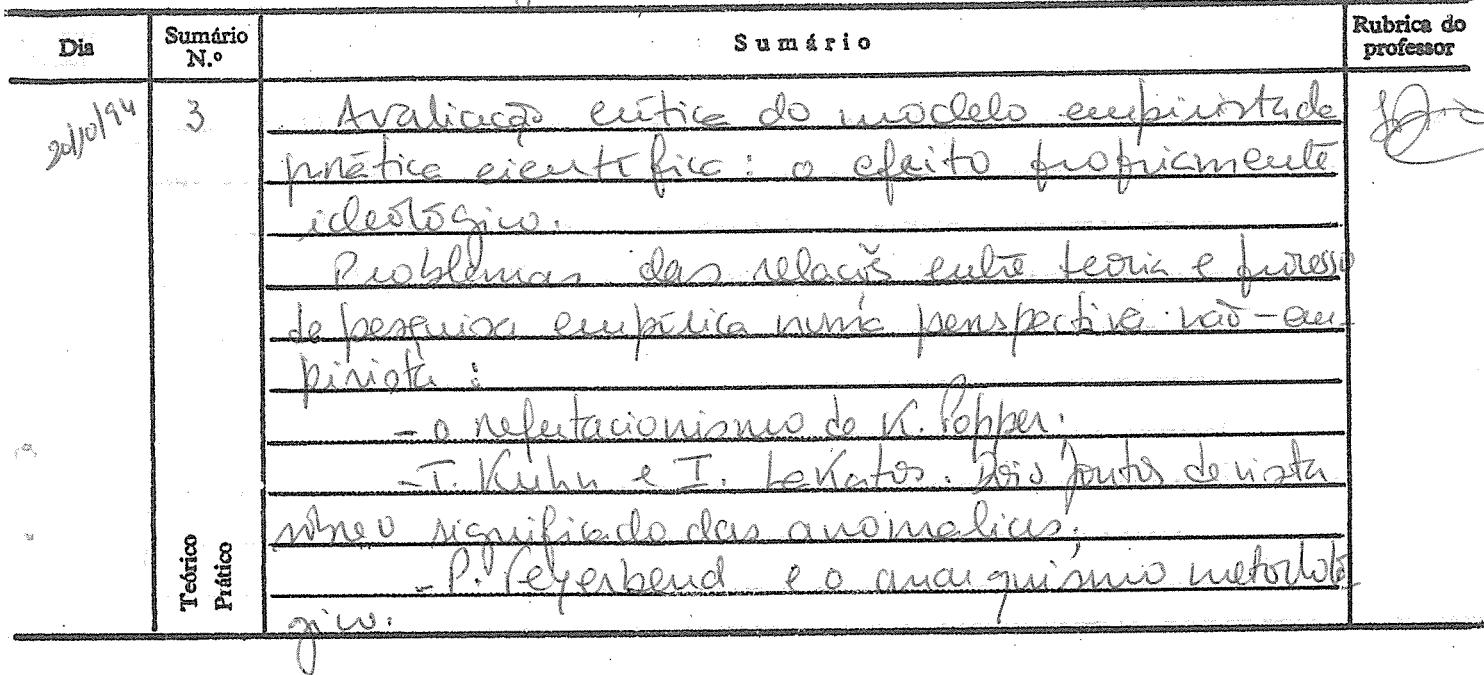 Dia
Sumário N.º
Sumário
Rubrica do professor
20/10/94
3
Avaliação crítica do modelo empirista de
prática científica: o efeito propriamente
ideológico.
Problemas das relações entre teoria e processo
de pesquisa empírica numa perspectiva não-em-
pirista:
- o refutacionismo de K. Popper.
- T. Kuhn e I. Lakatos. Dois pontos de vista
sobre o significado das anomalias.
- P. Feyerbend e o anarquismo metodoló
gico.
Teórico
Prático